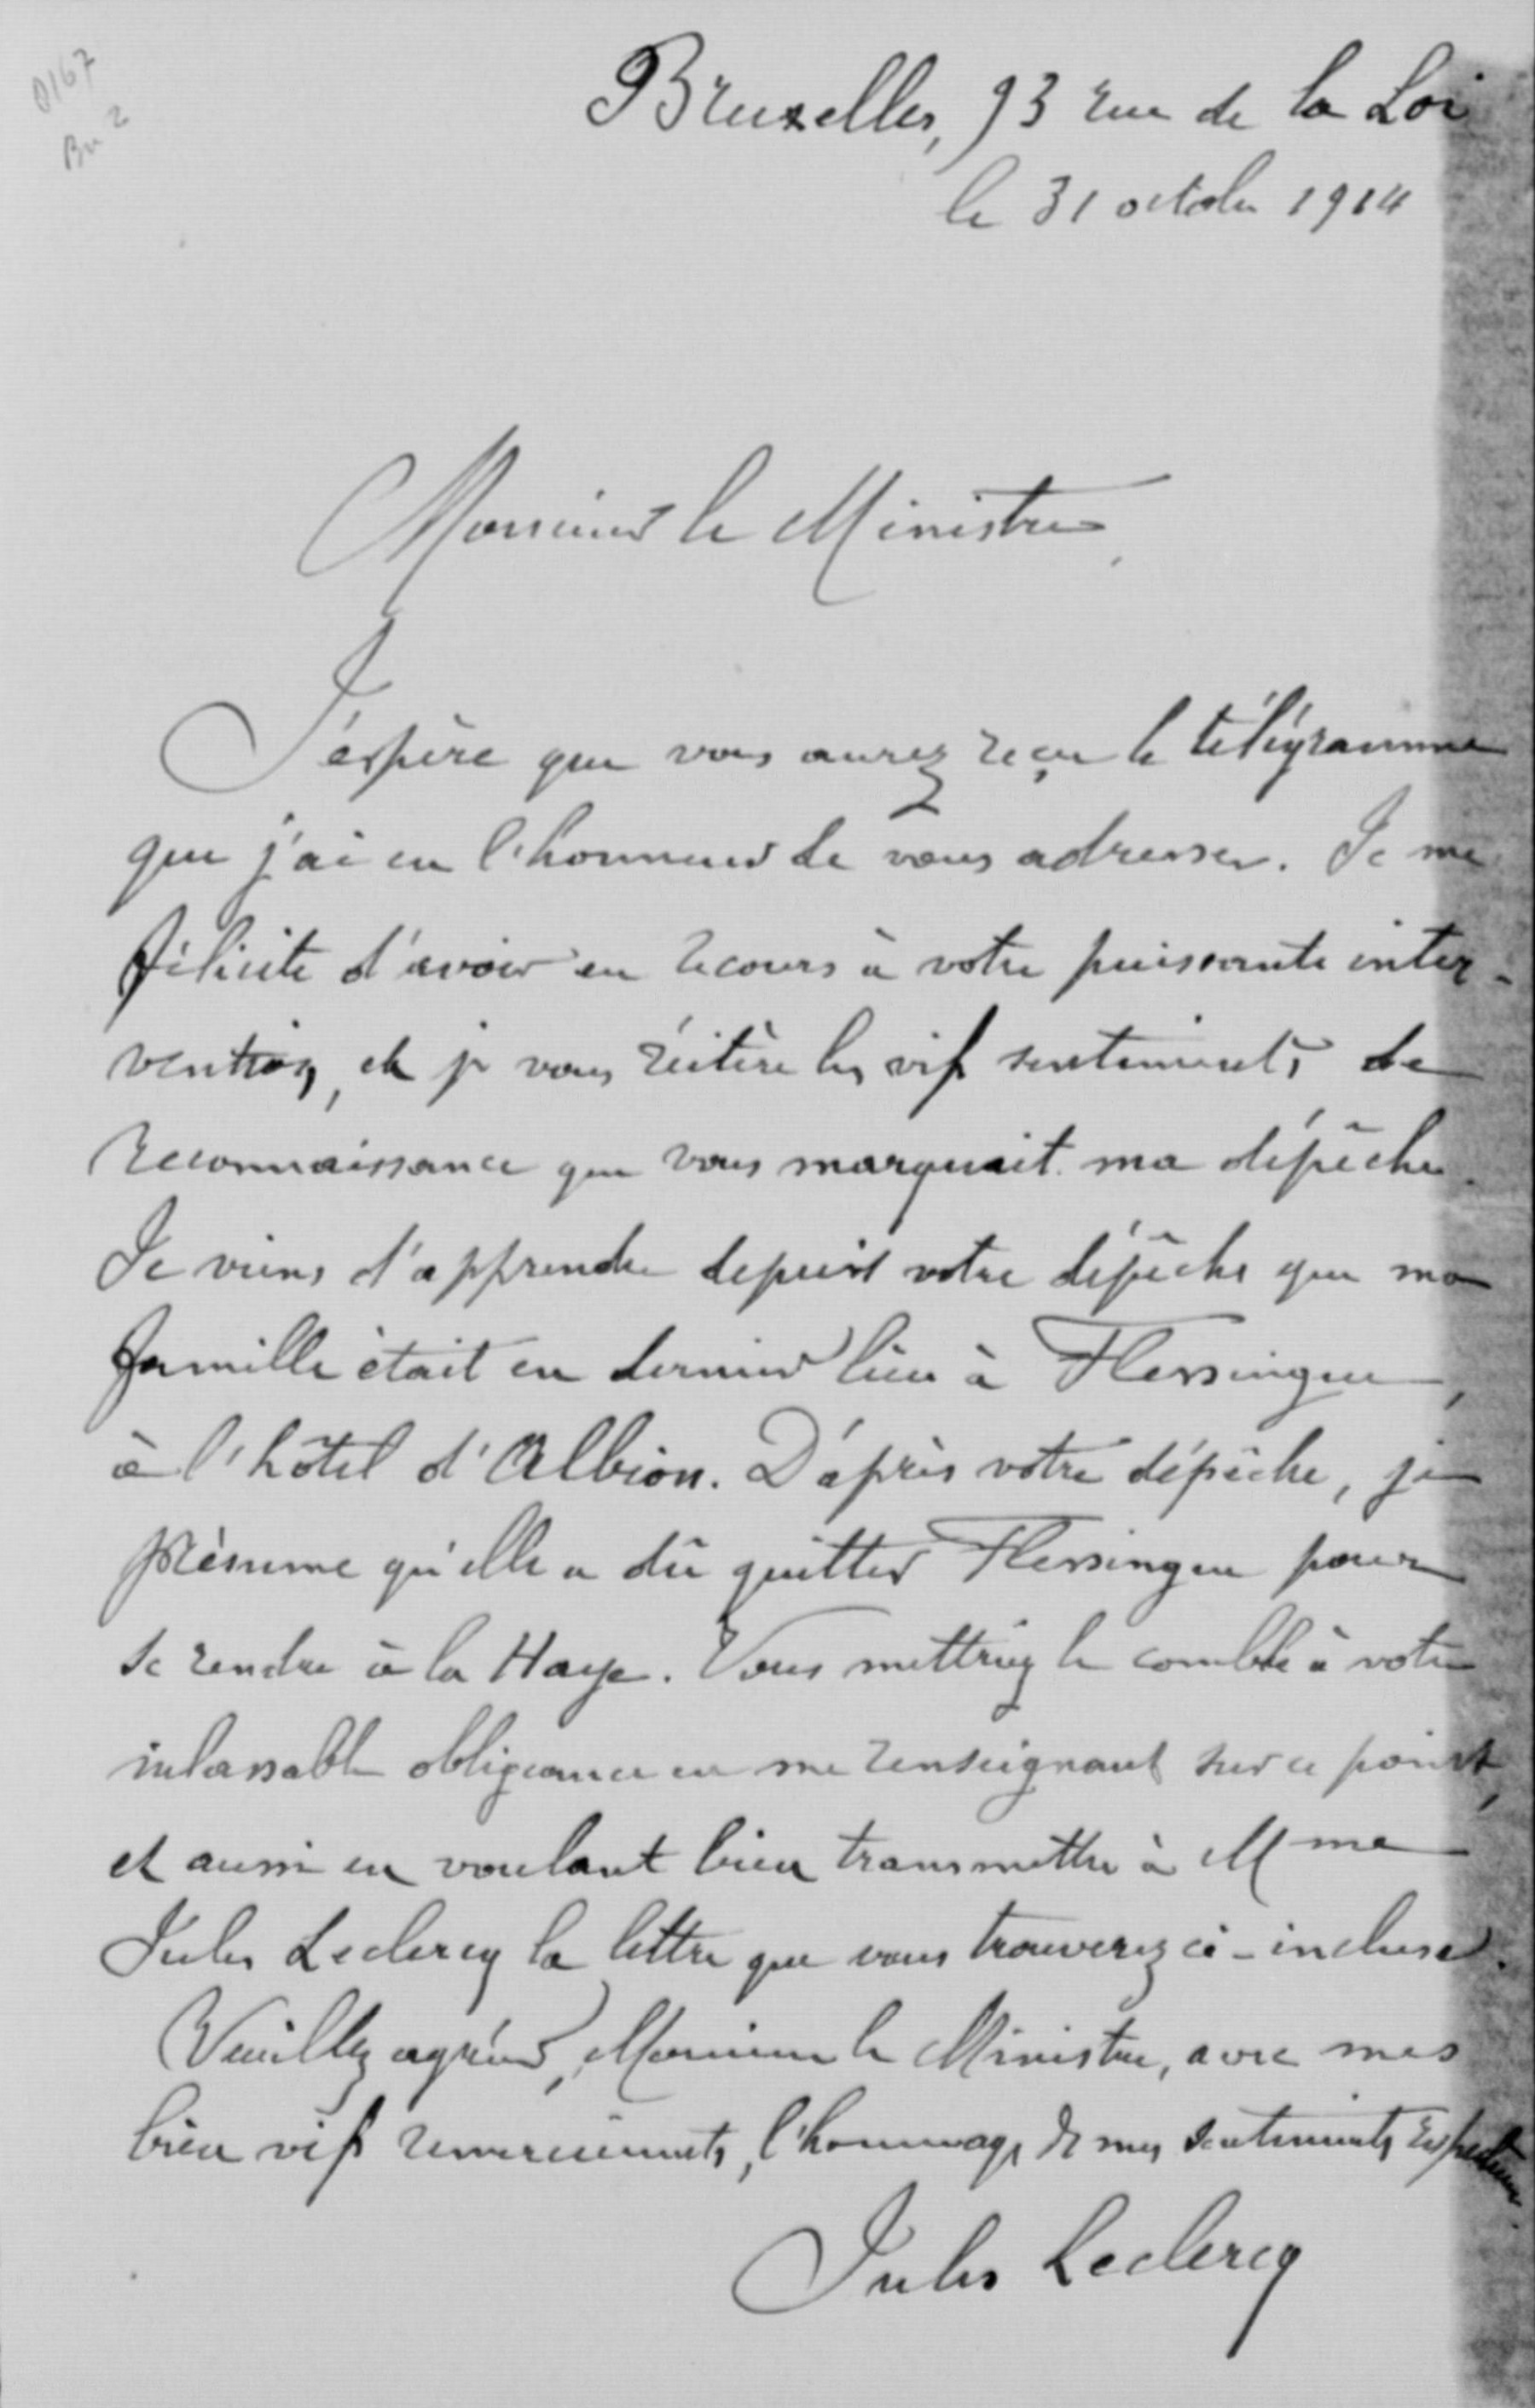 0167
Bu 2
Bruxelles, 93 rue de la Loi
le 31 octobre 1914
Monsieur le Ministre,
J'espère que vous aurez reçu le télégramme
que j'ai eu l'honneur de vous adresser. Je me
félicite d'avoir eu recours à votre puissante inter-
vention, et je vous réitère les vifs sentiments de
reconnaissance que vous marquait ma dépêche.
Je viens d'apprendre depuis votre dépêche que ma
famille était en dernier lieu à Flessingue,
à l'hôtel d'Albion. D'après votre dépêche, je
présume qu'elle a dû quitter Flessingue pour
se rendre à la Haye. Vous mettriez le comble à votre
inlassable obligeance en me renseignant sur ce point,
et aussi en voulant bien transmettre à Mme
Jules Leclercq la lettre que vous trouverez ci-incluse.
Veuillez agréer, Monsieur le Ministre, avec mes
bien vifs remerciements, l'hommage de mes sentiments respectueux.
Jules Leclercq